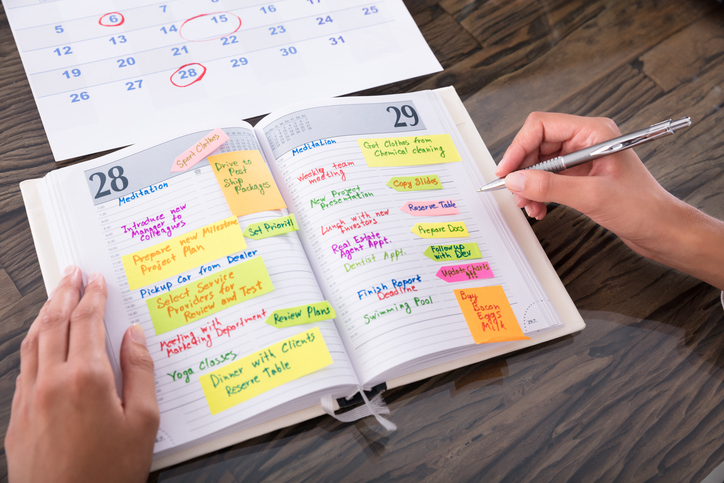 5 6 7 8 9 10 11
12 13 14 15 16 17 18
19 20 21 22 23 24 25
26 27 28 29 30 31
28
Sport Clothes
Meditation
Drive to
Post
Ship
Packages
Introduce new
Manager to
colleagues
Set Prioriti
Prepare new Milestone
Project Plan
Pickup Car from Dealer
Select Service
Providers for
Review and Test
Review Plans
Meeting with
Marketing Department
Yoga Classes
Dinner with Clients
Reserve Table
29
Meditation
Got Clothes from
Chemical cleaning
Weekly team
meeting
Copy Slides
New Project
Presentation
Reserve Table
Lunch with new
Investors
Prepare Docs
Real Estate
Agent Appt.
Followup
with Dev
Dentist Appt.
Update Charts
Finish Report
Deadline
Buy
Bacon
Eggs
Milk
Swimming Pool